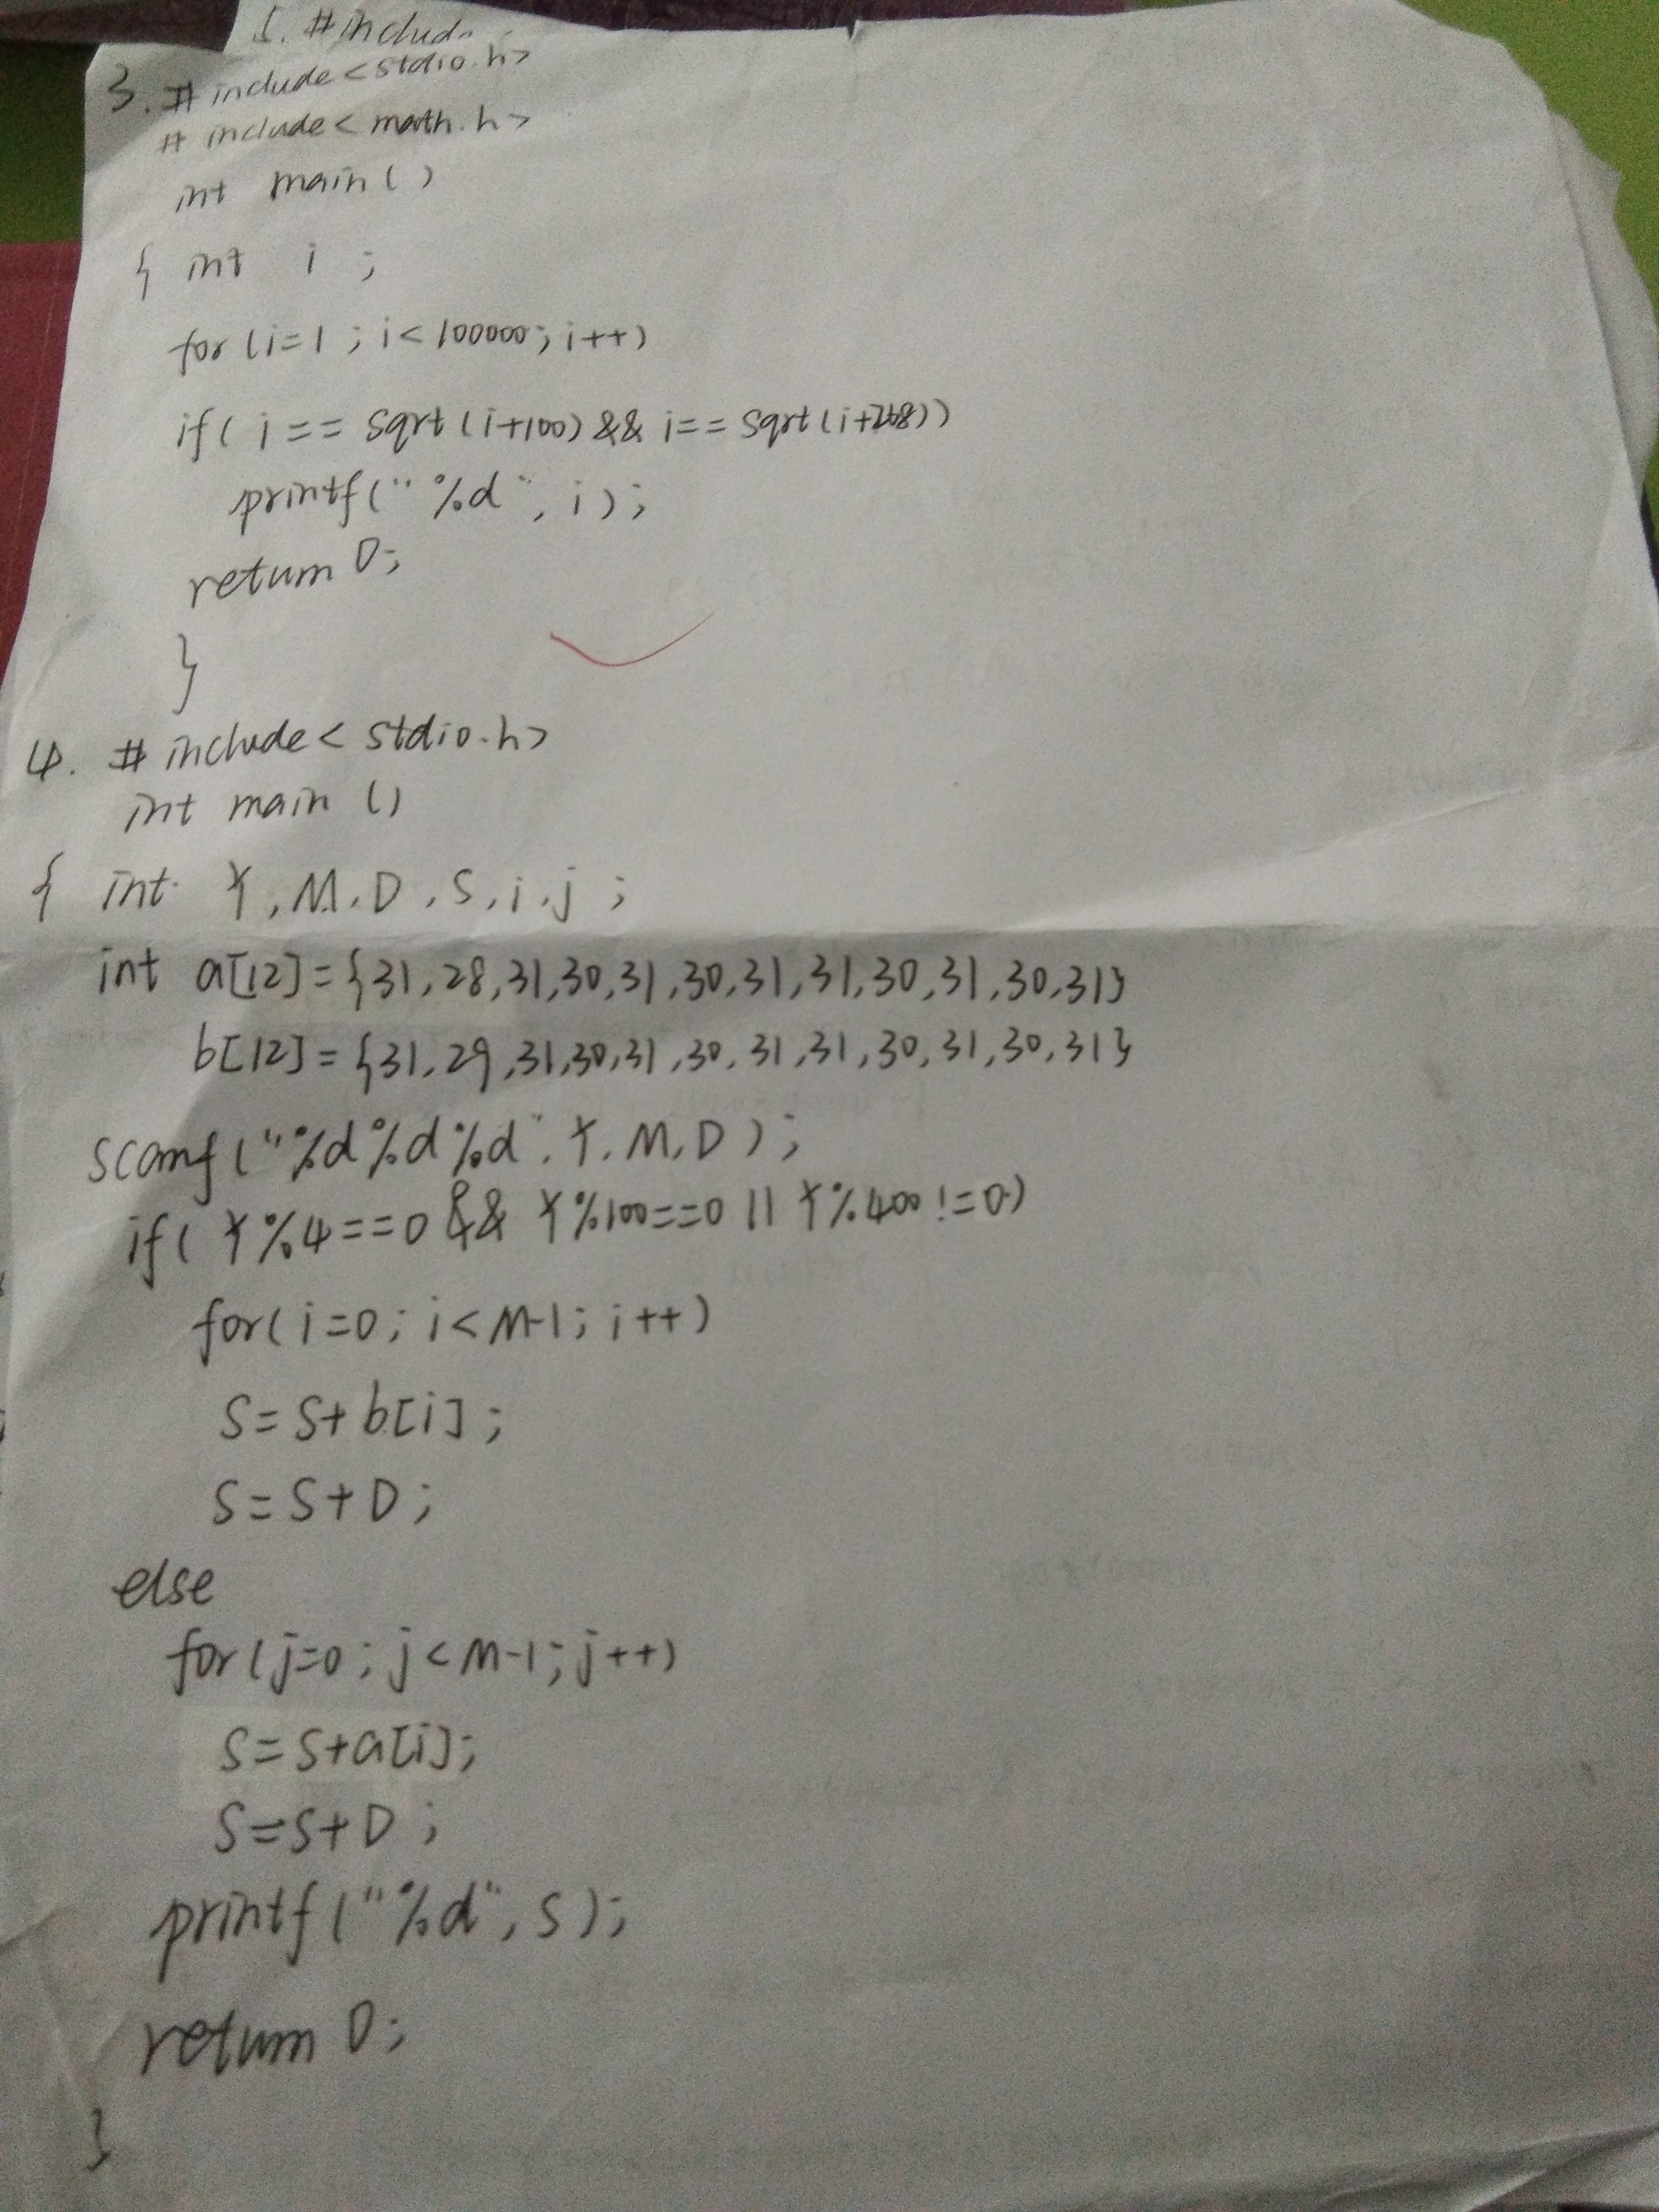 5. #includ
3. #include<stdio.h>
#include<math.h>
int main()
{ int i ;
for(i=1;i<100000;i++)
if(i==sqrt(i+100)&&i==sqrt(i+268))
printf("%d",i);
return 0;
}
4. #include<stdio.h>
int main()
{ int Y,M,D,S,i,j;
int a[12]={31,28,31,30,31,30,31,31,30,31,30,31}
b[12]={31,29,31,30,31,30,31,31,30,31,30,31}
scanf("%d%d%d",Y,M,D);
if(Y%4==0&&Y%100==0||Y%400!=0)
for(i=0;i<M-1;i++)
S=S+b[i];
S=S+D;
else
for(j=0;j<M-1;j++)
S=S+a[i];
S=S+D;
printf("%d",S);
return 0;
}